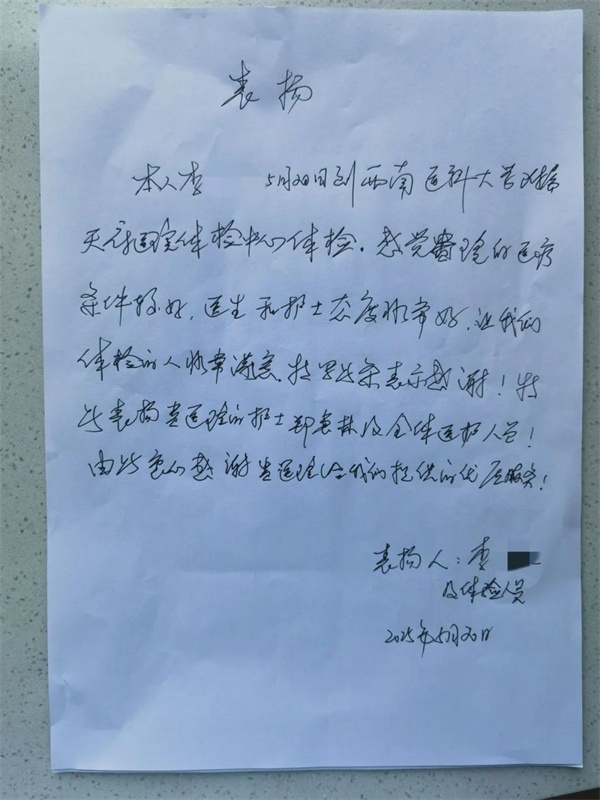 表扬
本人李 5月20日到西南医科大学附属
天府医院体检中心体检.感觉贵院的医疗
条件极好,医生和护士态度非常好,让我们
体检的人非常满意,特写此条表示感谢!特
此表扬贵医院的护士郑惠林及全体医护人员!
由此衷心感谢贵医院给我们提供的优质服务!
表扬人:李
及体检人员
2025年5月20日